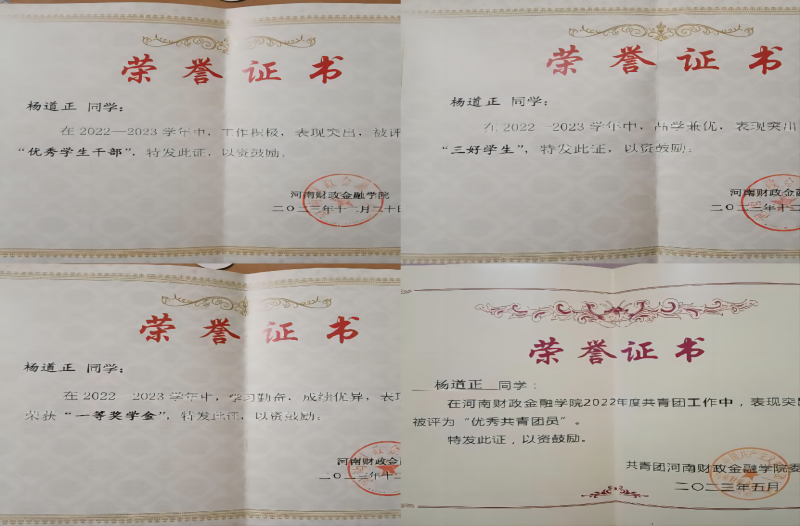 荣誉证书
杨道正 同学：
在2022—2023学年中，工作积极，表现突出，被评
“优秀学生干部”，特发此证，以资鼓励。
河南财政金融学院
二〇二三年十二月二十日
荣誉证书
杨道正 同学：
在2022—2023学年中，品学兼优，表现突出
“三好学生”，特发此证，以资鼓励。
河南财政金融
二〇二三年十二
荣誉证书
杨道正 同学：
在2022—2023学年中，学习勤奋，成绩优异，表现
荣获“一等奖学金”，特发此证，以资鼓励。
河南财政金
二〇二三年十二
荣誉证书
杨道正 同学：
在河南财政金融学院2022年度共青团工作中，表现突出
被评为“优秀共青团员”。
特发此证，以资鼓励。
共青团河南财政金融学院委
二〇二三年五月